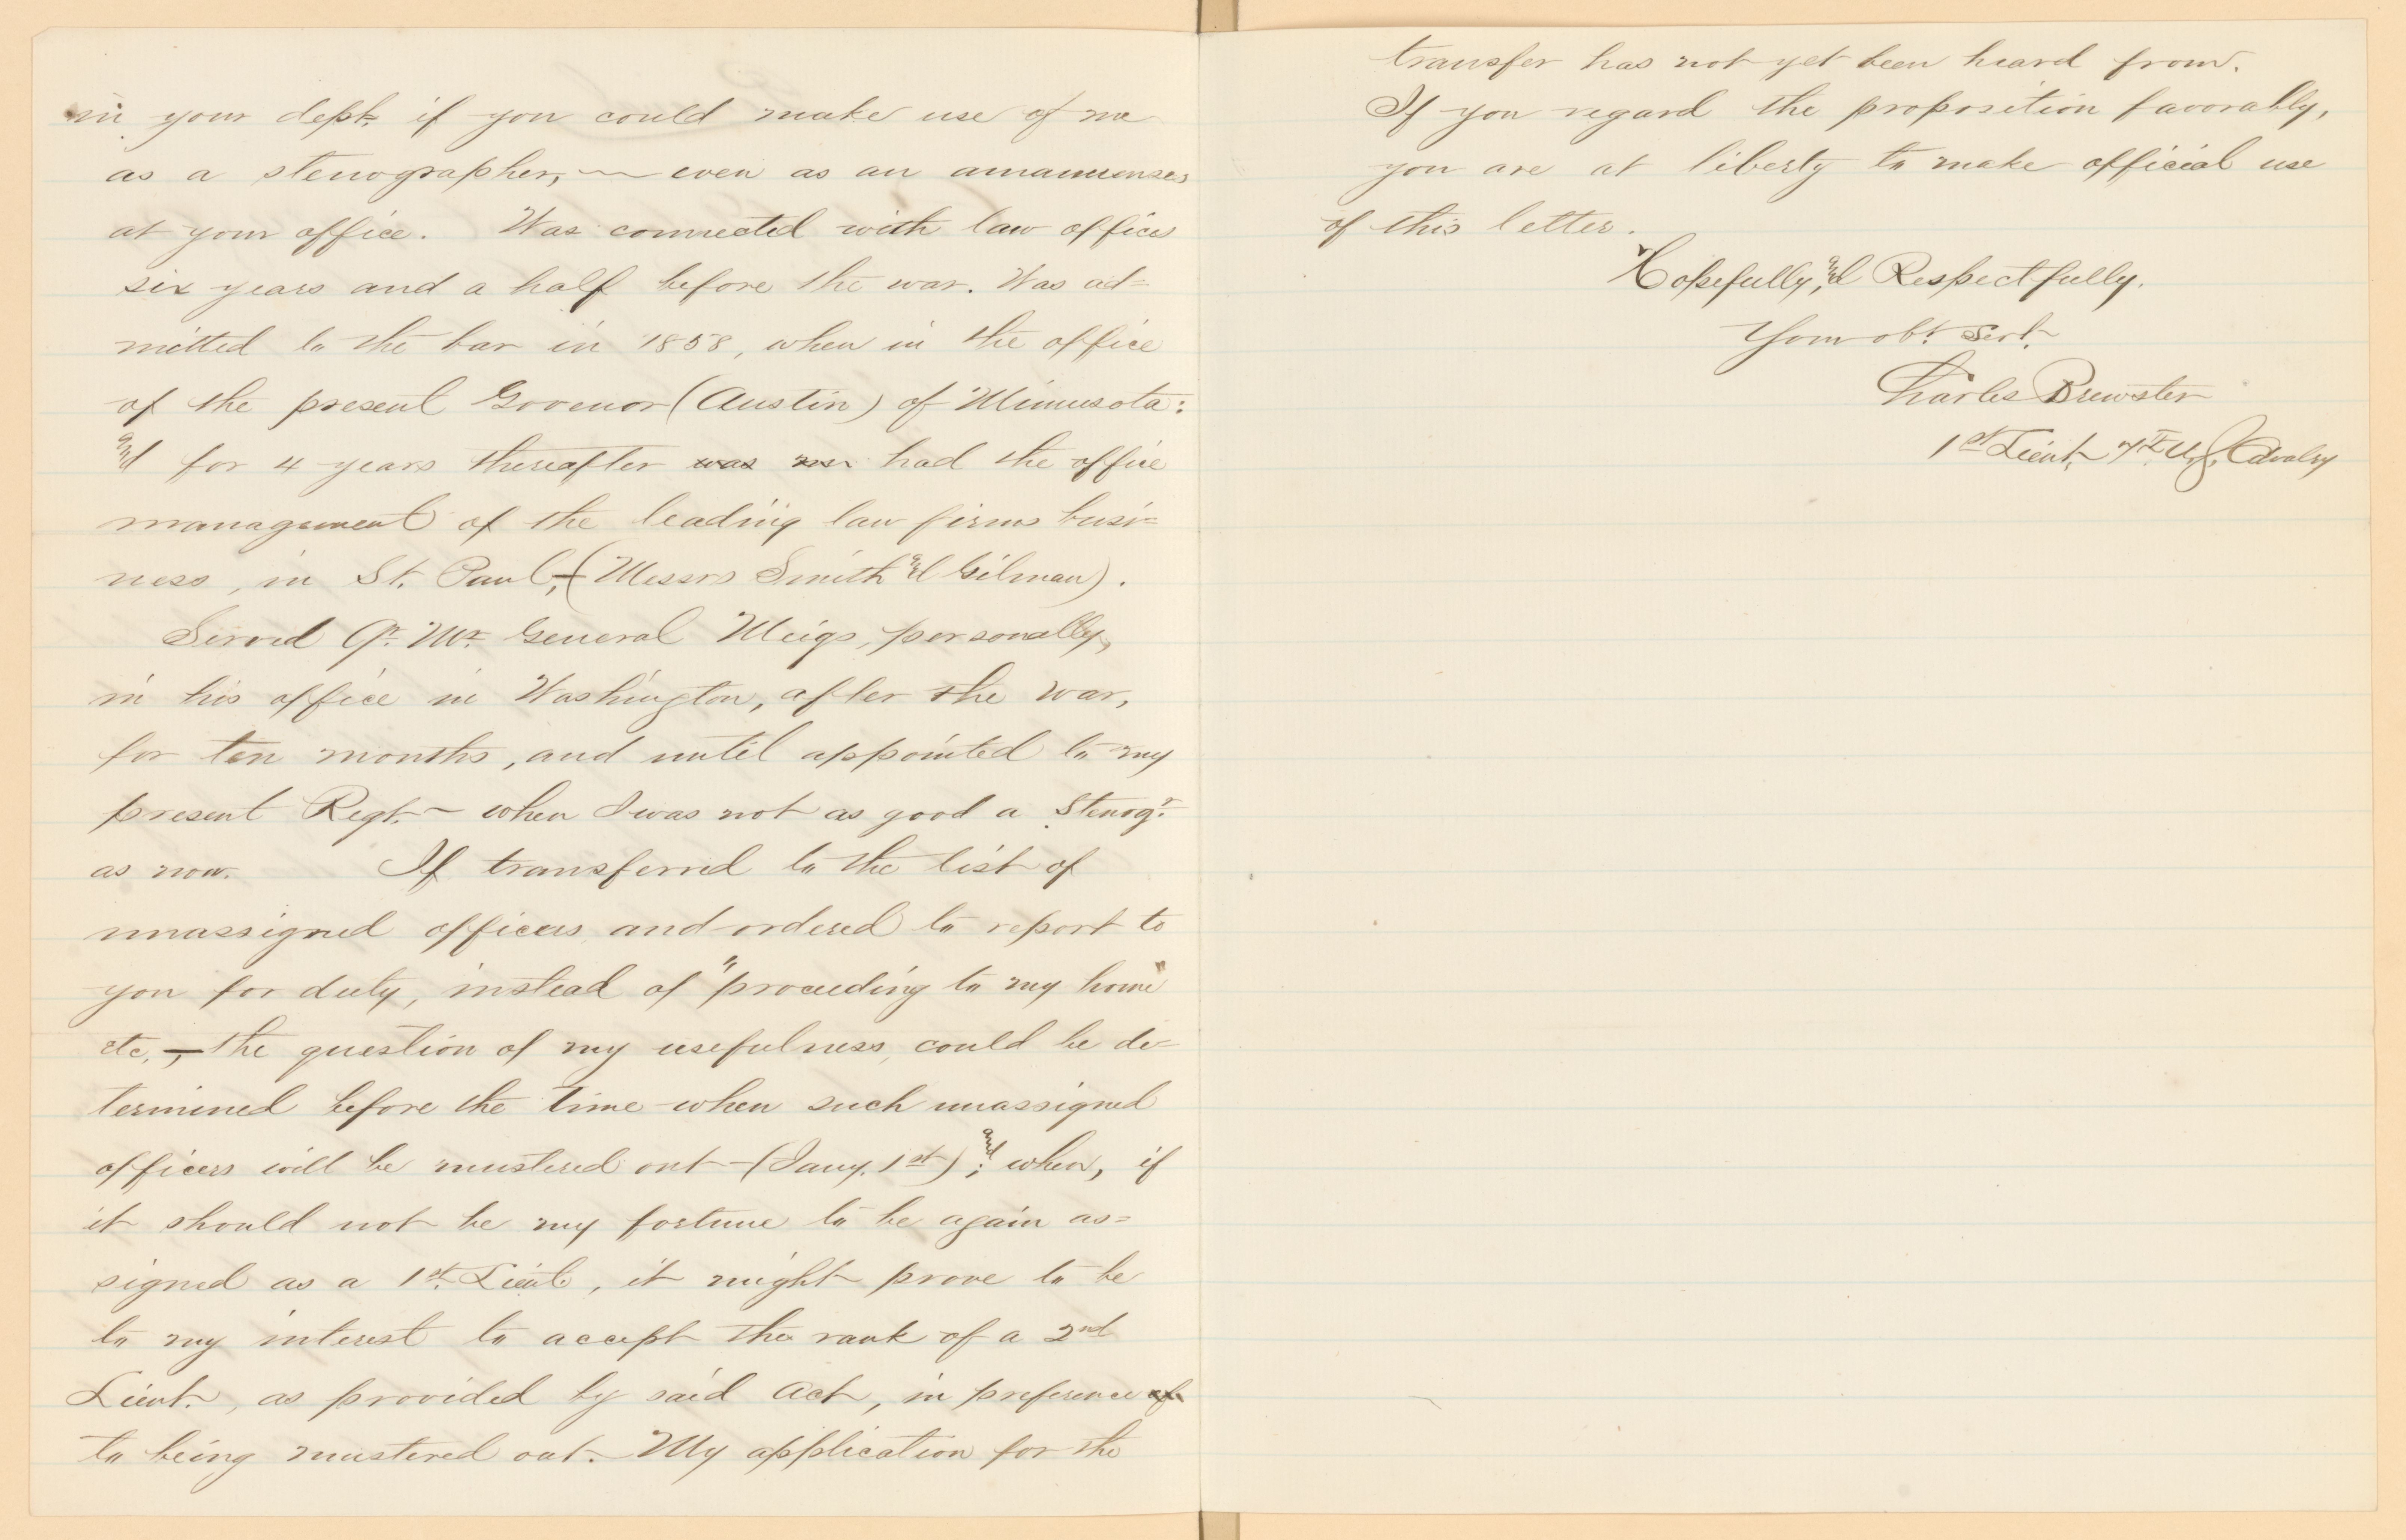 in your dept. if you could make use of me
as a stenographer, — even as an amanuenses
at your office. Was connected with law office
six years and a half before the war. Was ad=
mitted to the bar in 1858, when in the office
of the present Govenor (Austin) of Minnesota:
and for 4 years thereafter was had the office
management of the leading law firms busi=
ness, in St. Paul, — (Messrs Smith and Gilman).
Served Qr. Mr. General Meigs, personally,
in his office in Washington, after the war,
for ten months, and until appointed to my
present Regt. — when I was not as good a Stenogr.
as now. If transferred to the list of
unassigned officers and ordered to report to
you for duty, instead of "proceeding to my home"
etc, — the question of my usefulness, could be de=
termined before the time when such unassigned
officers will be mustered out — (Jany. 1st); and when, if
it should not be my fortune to be again as=
signed as a 1st. Lieut., it might prove to be
to my interest to accept the rank of a 2nd
Lieut., as provided by said Act, in preference of
to being mustered out. My application for the
transfer has not yet been heard from.
If you regard the proposition favorably,
you are at liberty to make official use
of this letter.
Hopefully, and Respectfully.
Your obt. Servt.
Charles Brewster
1st Lieut. 7th U.S. Cavalry